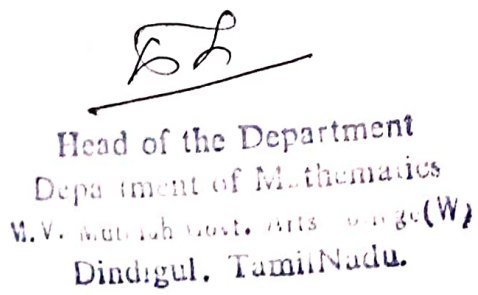 Head of the Department
Department of Mathematics
M.V. Govt. Arts (W)
Dindigul. TamilNadu.